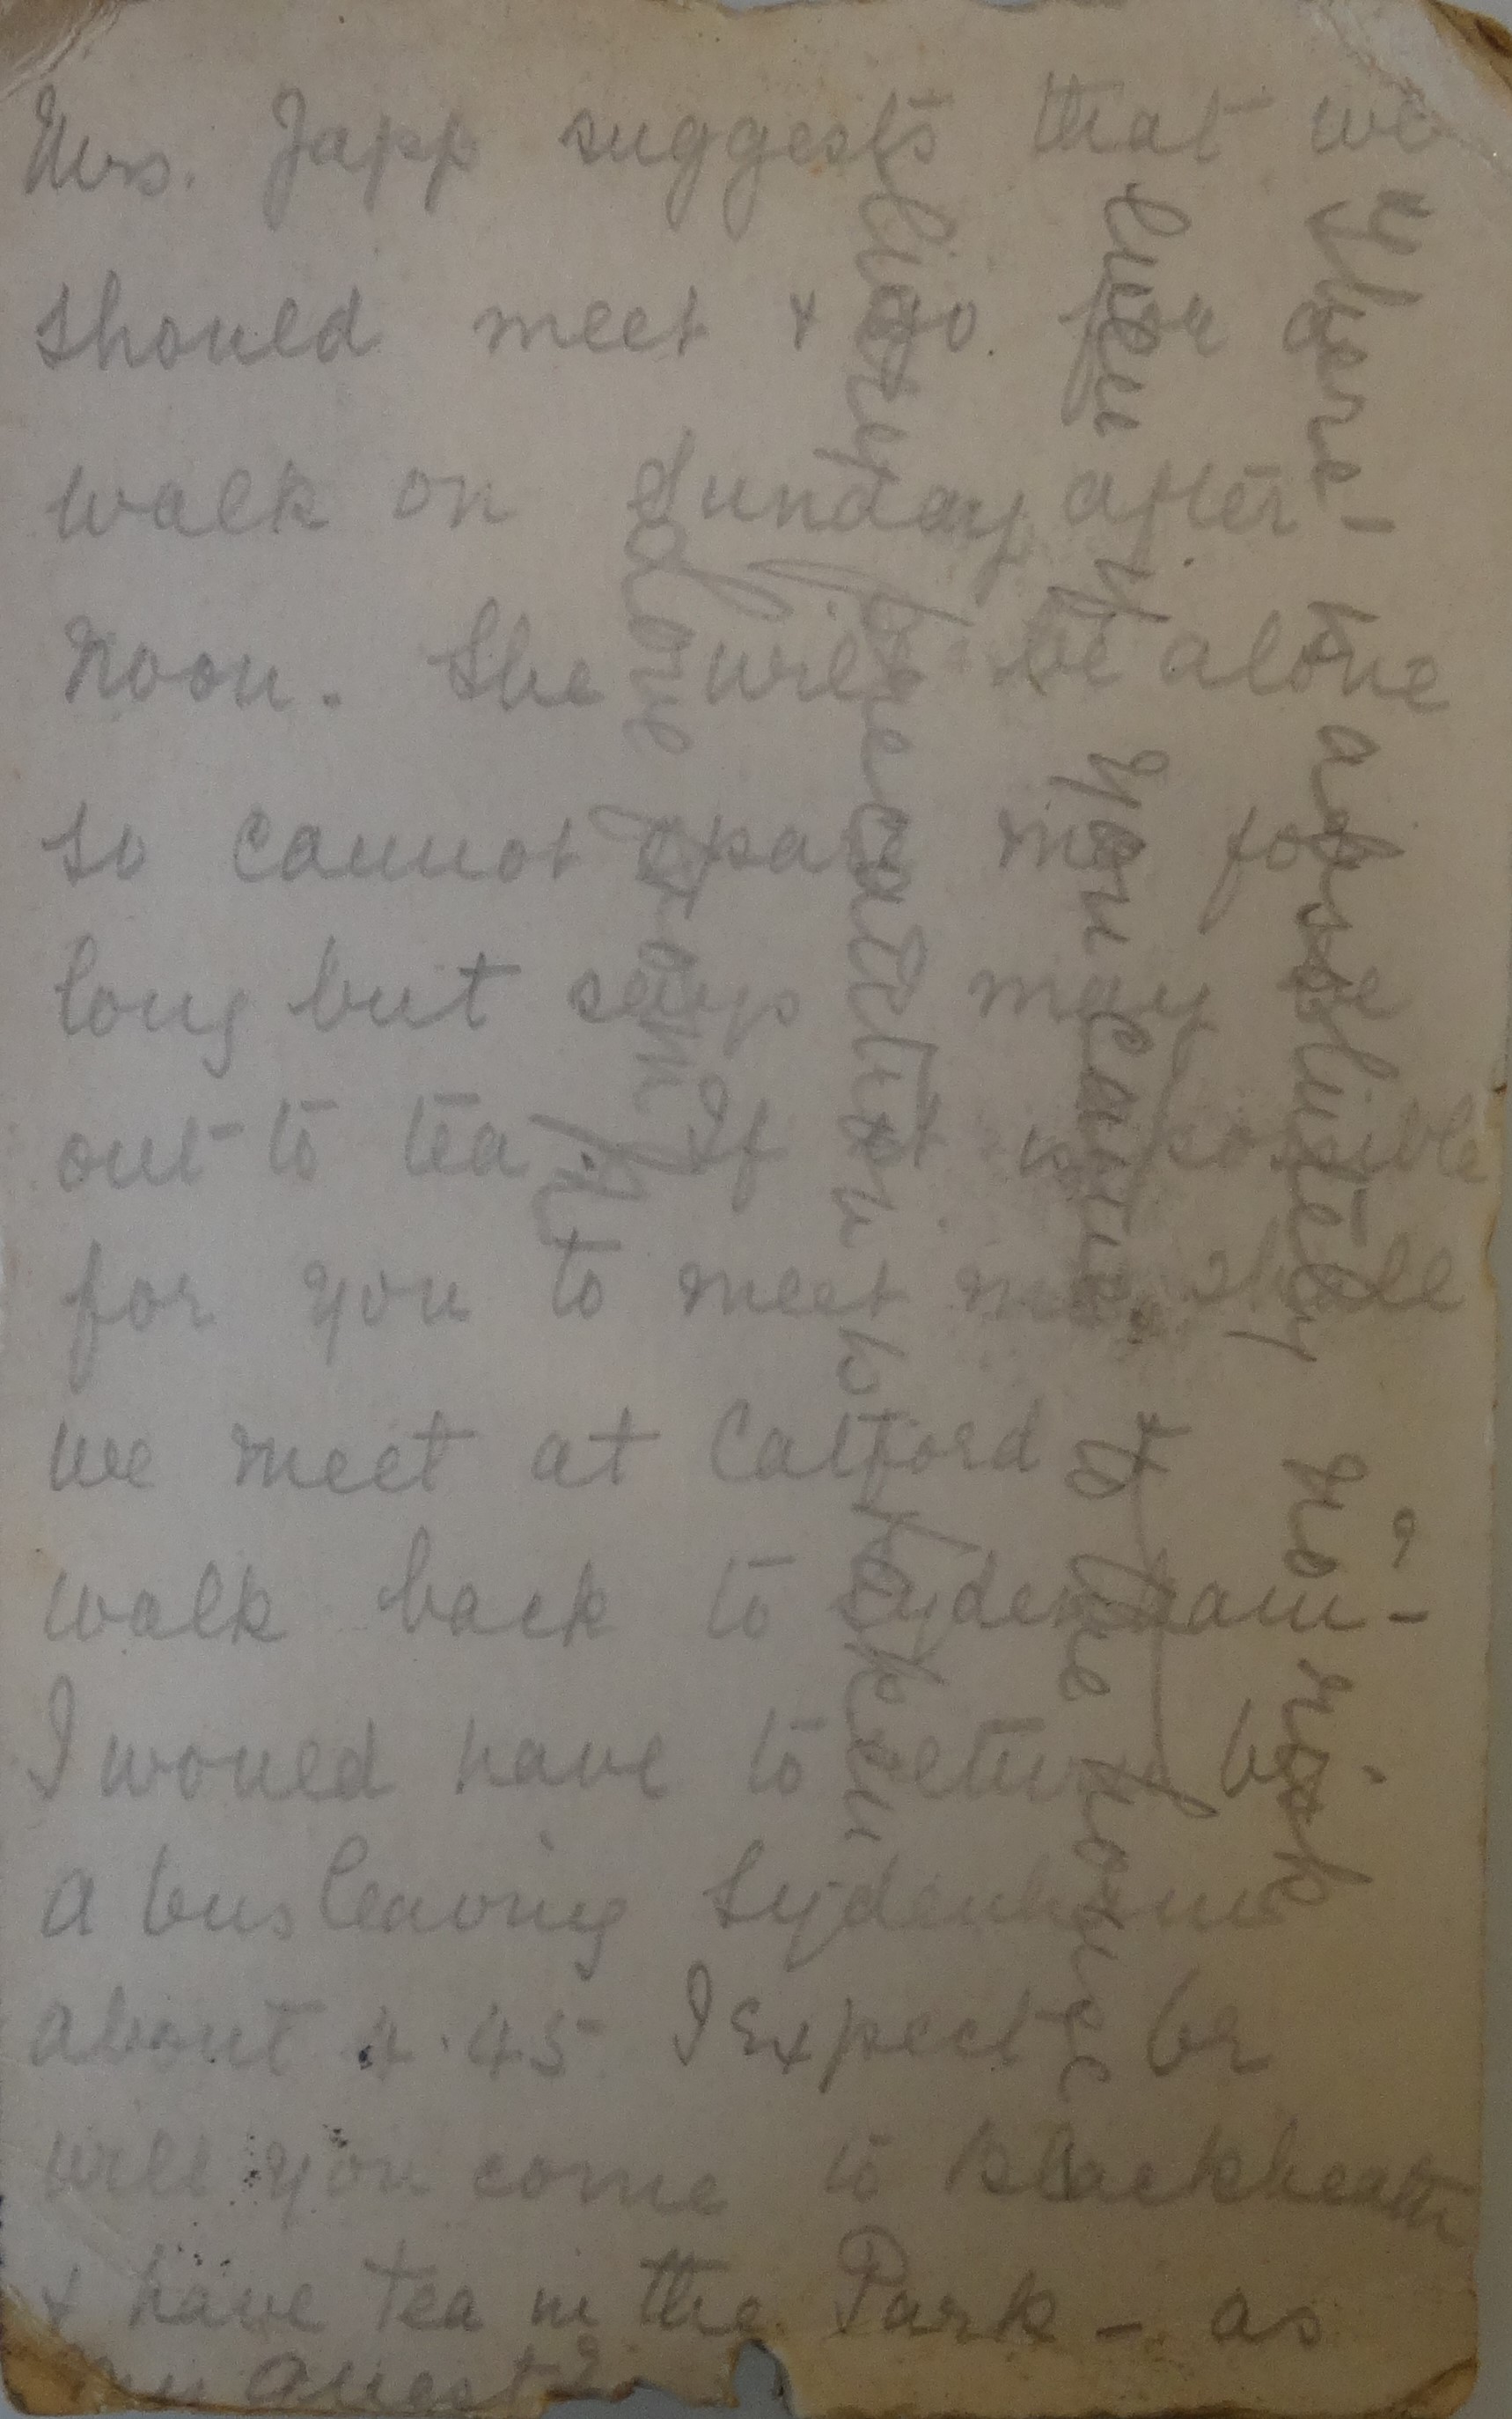 Mrs. Japp suggests that we
should meet + go for a
walk on Sunday after-
noon. She will be alone
so cannot spare me for
long but says I may be
out to tea. If it is possible
for you to meet me shall
we meet at Catford +
walk back to Sydenham -
I would have to return by
a bus leaving Sydenham
about 4.45 I expect. Or
will you come to Blackheath
+ have tea in the Park - as
my guest?
There is absolutely no risk
even if you came to the house
precaution